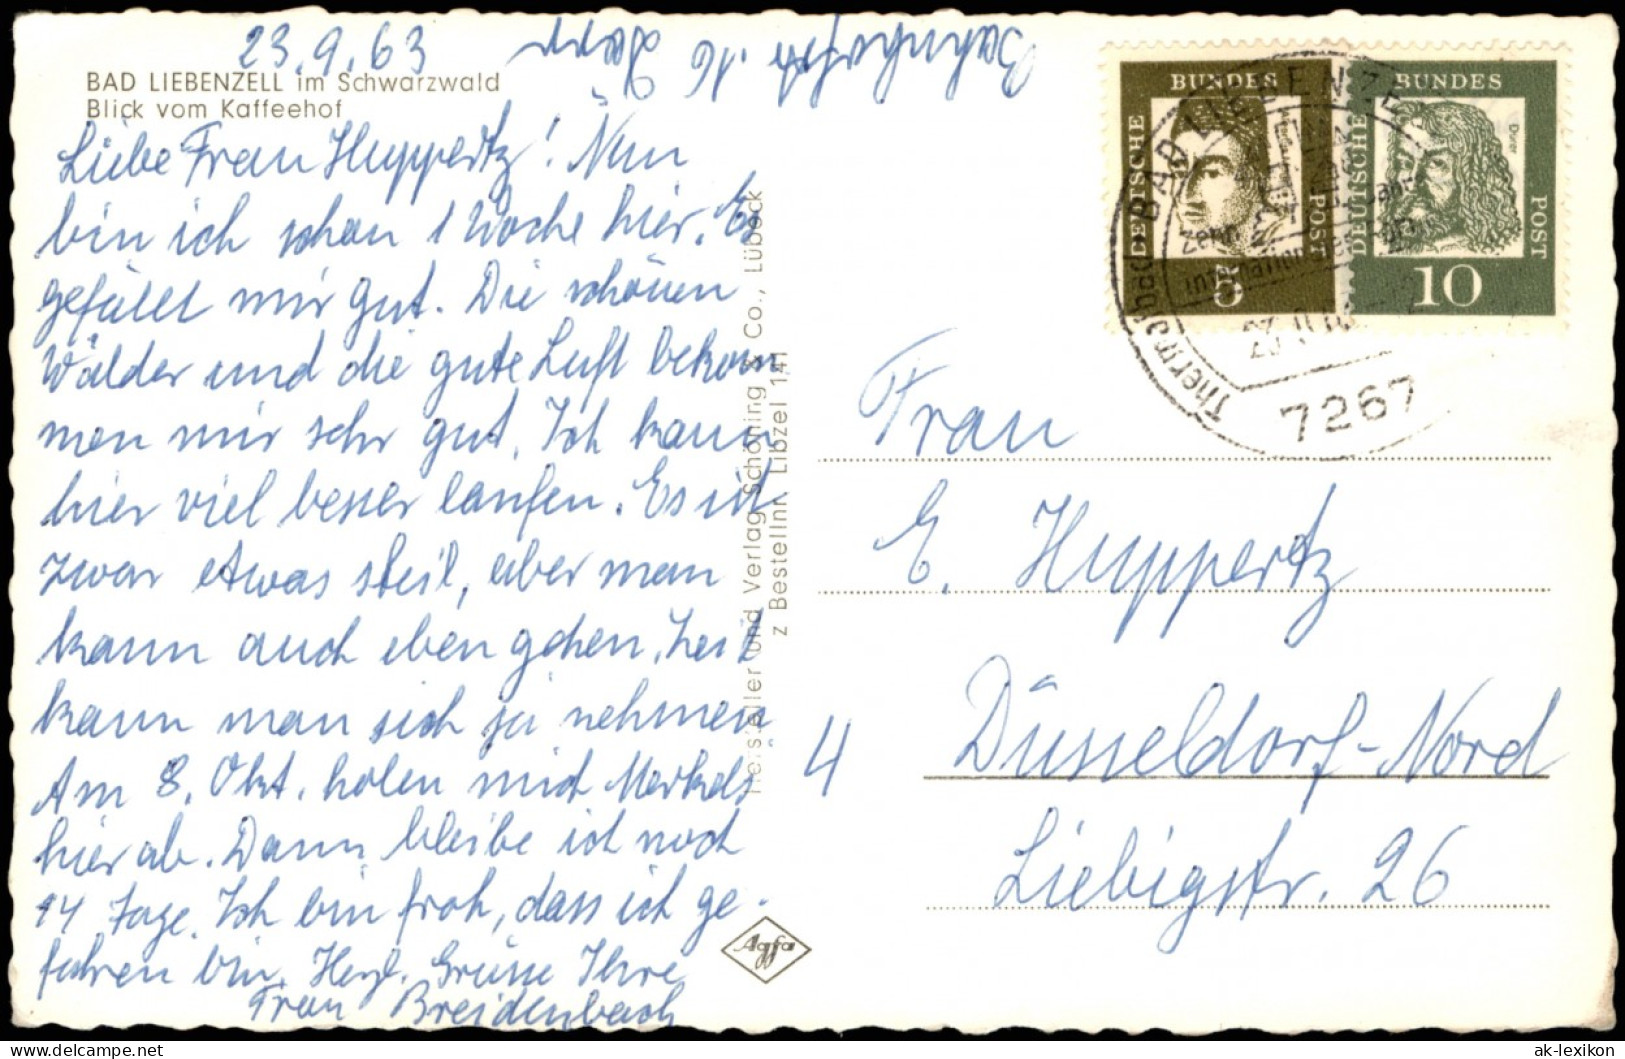 23.9.63
BAD LIEBENZELL im Schwarzwald
Blick vom Kaffeehof
Liebe Frau Huppertz! Nun
bin ich schon 1 Woche hier. Es
gefällt mir gut. Die schönen
Wälder und die gute Luft bekom
men mir sehr gut. Ich kann
hier viel besser laufen. Es ist
zwar etwas steil, aber man
kann auch eben gehen. Zeit
kann man sich ja nehmen
Am 8. Okt. holen mich Merkels
hier ab. Dann bleibe ich noch
14 Tage. Ich bin froh, dass ich ge-
fahren bin. Herzl. Grüsse Ihre
Frau Breidenbach
Bahnhofstr. 16
Hersteller und Verlag Schöning & Co., Lübeck
z Bestellnr. Libzel 141
Agfa
DEUTSCHE BUNDES POST
5
DEUTSCHE BUNDES POST
Dürer
10
BAD LIEBENZELL
Thermalbad
7267
Frau
E. Huppertz
4 Düsseldorf-Nord
Liebigstr. 26
ak-lexikon